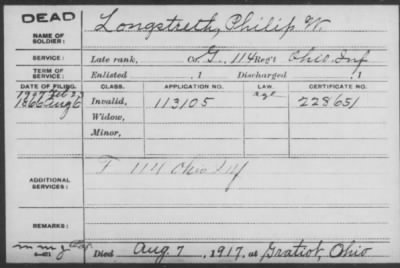 DEAD
NAME OF SOLDIER: Longstreth, Philip W.
SERVICE: Late rank, Co. G, 114 Reg't Ohio Inf
TERM OF SERVICE: Enlisted , 1 Discharged , 1
DATE OF FILING. CLASS. APPLICATION NO. LAW. CERTIFICATE NO.
1907 Feb 23 age
1866 Aug 6 Invalid, 113105 228651
Widow,
Minor,
ADDITIONAL SERVICES: F 114 Ohio Inf
REMARKS:
Died Aug. 7, 1917, at Gratiot, Ohio